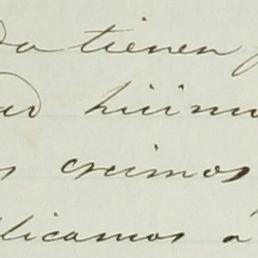 da tienen
ad hici
s creimos
licamos á